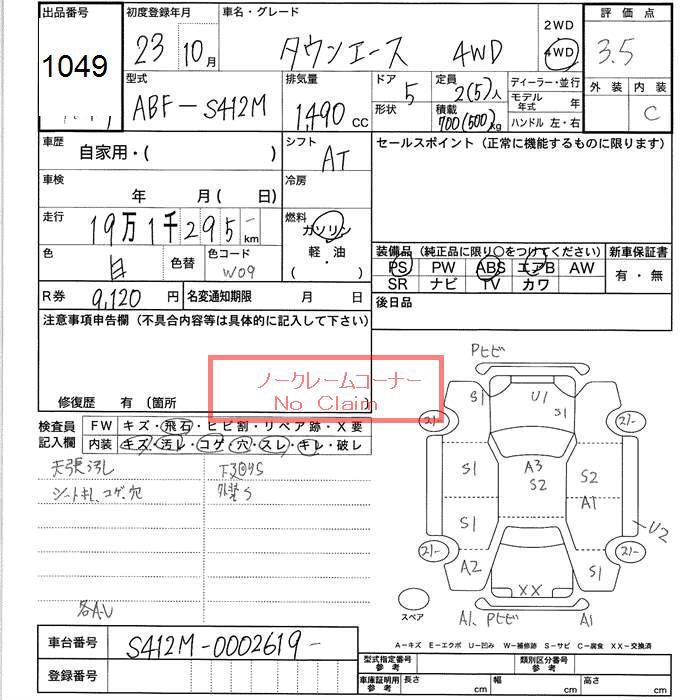 出品番号 初度登録年月 車名・グレード 2WD 評価点
1049 23 10月 タウンエース 4WD 4WD 3.5
型式 排気量 ドア 定員 ディーラー・並行 外装 内装
ABF-S412M 1,490 CC 5 2(5)人 モデル年式 年 C
形状 積載 700(500)kg ハンドル 左・右
車歴 自家用・( ) シフト AT セールスポイント(正常に機能するものに限ります)
車検 年 月( 日) 冷房
走行 19万1千295- km 燃料 ガソリン
軽・油
( )
色 色替 色コード W09
装備品(純正品に限り〇をつけてください) 新車保証書
PS PW ABS エアB AW 有・無
SR ナビ TV カワ
R券 9,120 円 名変通知期限 月 日 後日品
注意事項申告欄(不具合内容等は具体的に記入して下さい)
ノークレームコーナー
No Claim
修復歴 有(箇所
検査員記入欄 FW キズ・飛石・ヒビ割・リペア跡・X要
内装 キズ・汚レ・コゲ・穴・スレ・キレ・破レ
天張汚レ
シートキレ、コゲ、穴
各A.U
Pヒビ
S1 U1 S1
21- 21-
S1 A3 S2 S2
A1
S1 U2
21- 21-
A2 S1
XX
スペア A1、Pヒビ A1
A-キズ E-エクボ U-凹み W-補修跡 S-サビ C-腐食 XX-交換済
車台番号 S412M-0002619-
型式指定番号 参考 類別区分番号 参考
登録番号 車庫証明用 参考 長さ cm 幅 cm 高さ cm